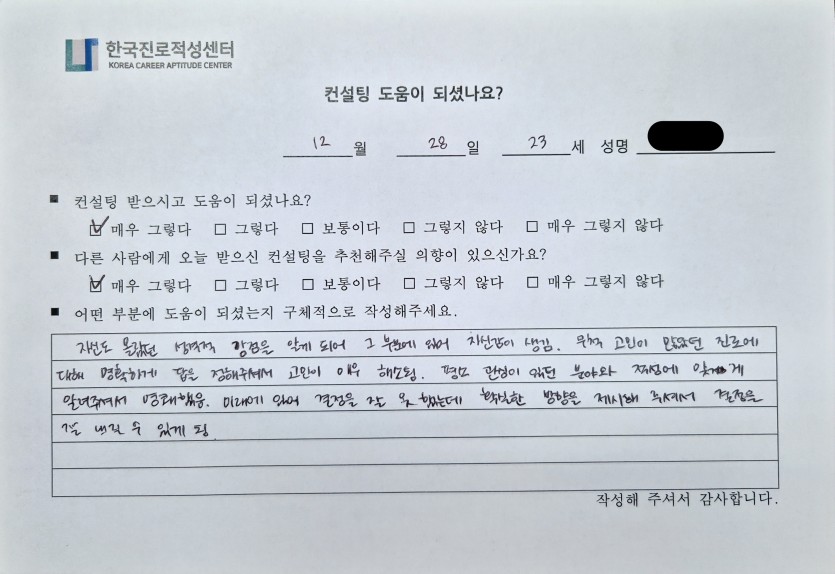 한국진로적성센터
KOREA CAREER APTITUDE CENTER
컨설팅 도움이 되셨나요?
12 월 28 일 23 세 성명
■ 컨설팅 받으시고 도움이 되셨나요?
☑ 매우 그렇다 □ 그렇다 □ 보통이다 □ 그렇지 않다 □ 매우 그렇지 않다
■ 다른 사람에게 오늘 받으신 컨설팅을 추천해주실 의향이 있으신가요?
☑ 매우 그렇다 □ 그렇다 □ 보통이다 □ 그렇지 않다 □ 매우 그렇지 않다
■ 어떤 부분에 도움이 되셨는지 구체적으로 작성해주세요.
자신도 몰랐던 성격적 강점을 알게 되어 그 부분에 있어 자신감이 생김. 무척 고민이 많았던 진로에
대해 명확하게 답을 정해주셔서 고민이 매우 해소됨. 평소 관심이 있던 분야와 적성에 맞게
알려주셔서 명쾌했음. 미래에 있어 결정을 잘 못 했는데 확실한 방향을 제시해 주셔서 결정을
잘 내릴 수 있게 됨.
작성해 주셔서 감사합니다.